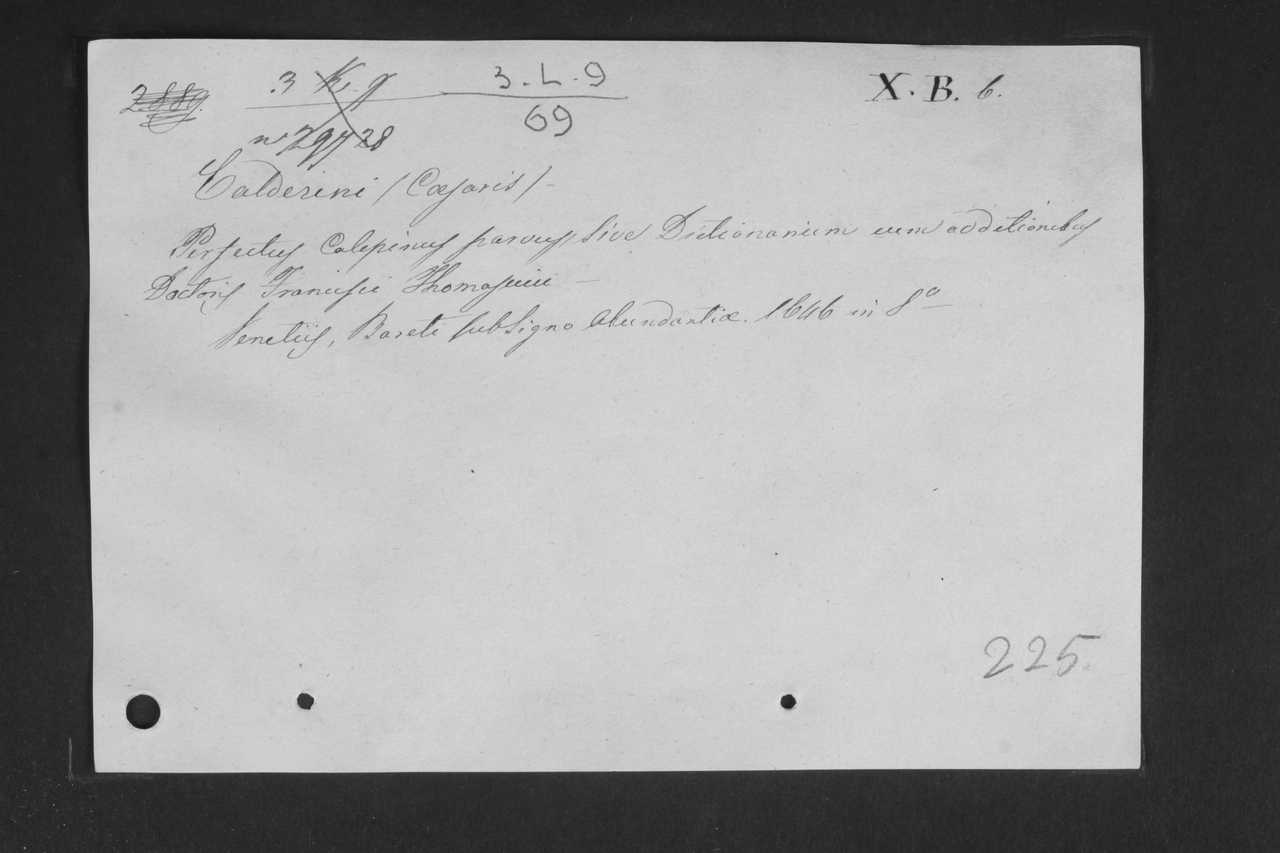 3. L. 9
69
X. B. 6.
Calderini / Cæsaris / -
Perfectus Calepinus parvus, sive Dictionarium cum additionibus
Doctoris Francisci Thomasini -
Venetiis, Bareti sub Signo Abundantiæ. 1646 in 8º
225